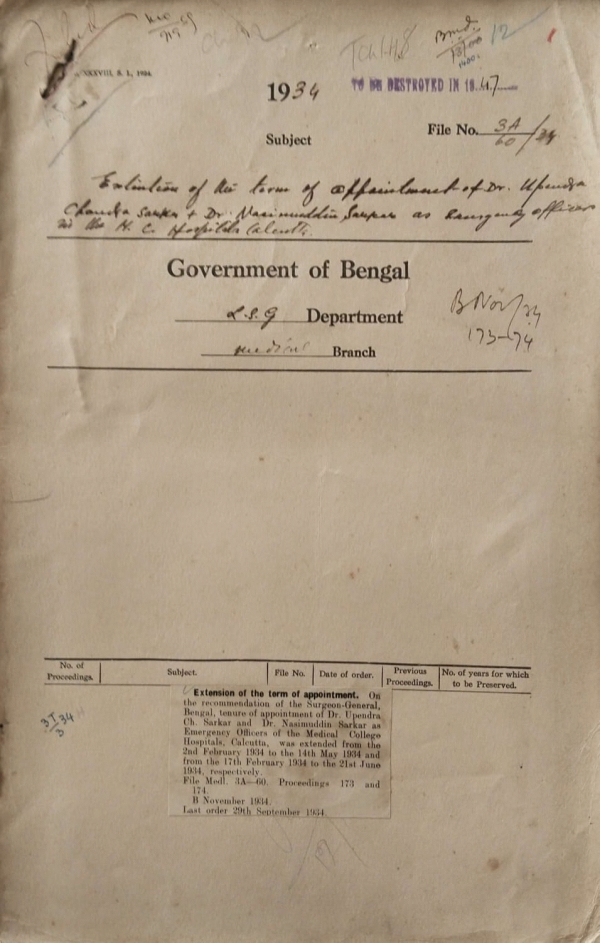 XXXVIII S. 1, 1934.
12
1934
TO BE DESTROYED IN 1947
Subject
File No. 3A/60/34
Extention of the term of appointment of Dr. Upendra
Chandra Sarkar & Dr. Nasimuddin Sarkar as Emergency officers
in the M. C. Hospitals Calcutta.
Government of Bengal
L.S.G Department
Medical Branch
B Nov/34
173-74
No. of Proceedings.
Subject.
File No.
Date of order.
Previous Proceedings.
No. of years for which to be Preserved.
Extension of the term of appointment. On
the recommendation of the Surgeon-General,
Bengal, tenure of appointment of Dr. Upendra
Ch. Sarkar and Dr. Nasimuddin Sarkar as
Emergency Officers of the Medical College
Hospitals, Calcutta, was extended from the
2nd February 1934 to the 14th May 1934 and
from the 17th February 1934 to the 21st June
1934, respectively.
File Medl. 3A—60. Proceedings 173 and
174.
B November 1934.
Last order 29th September 1934.